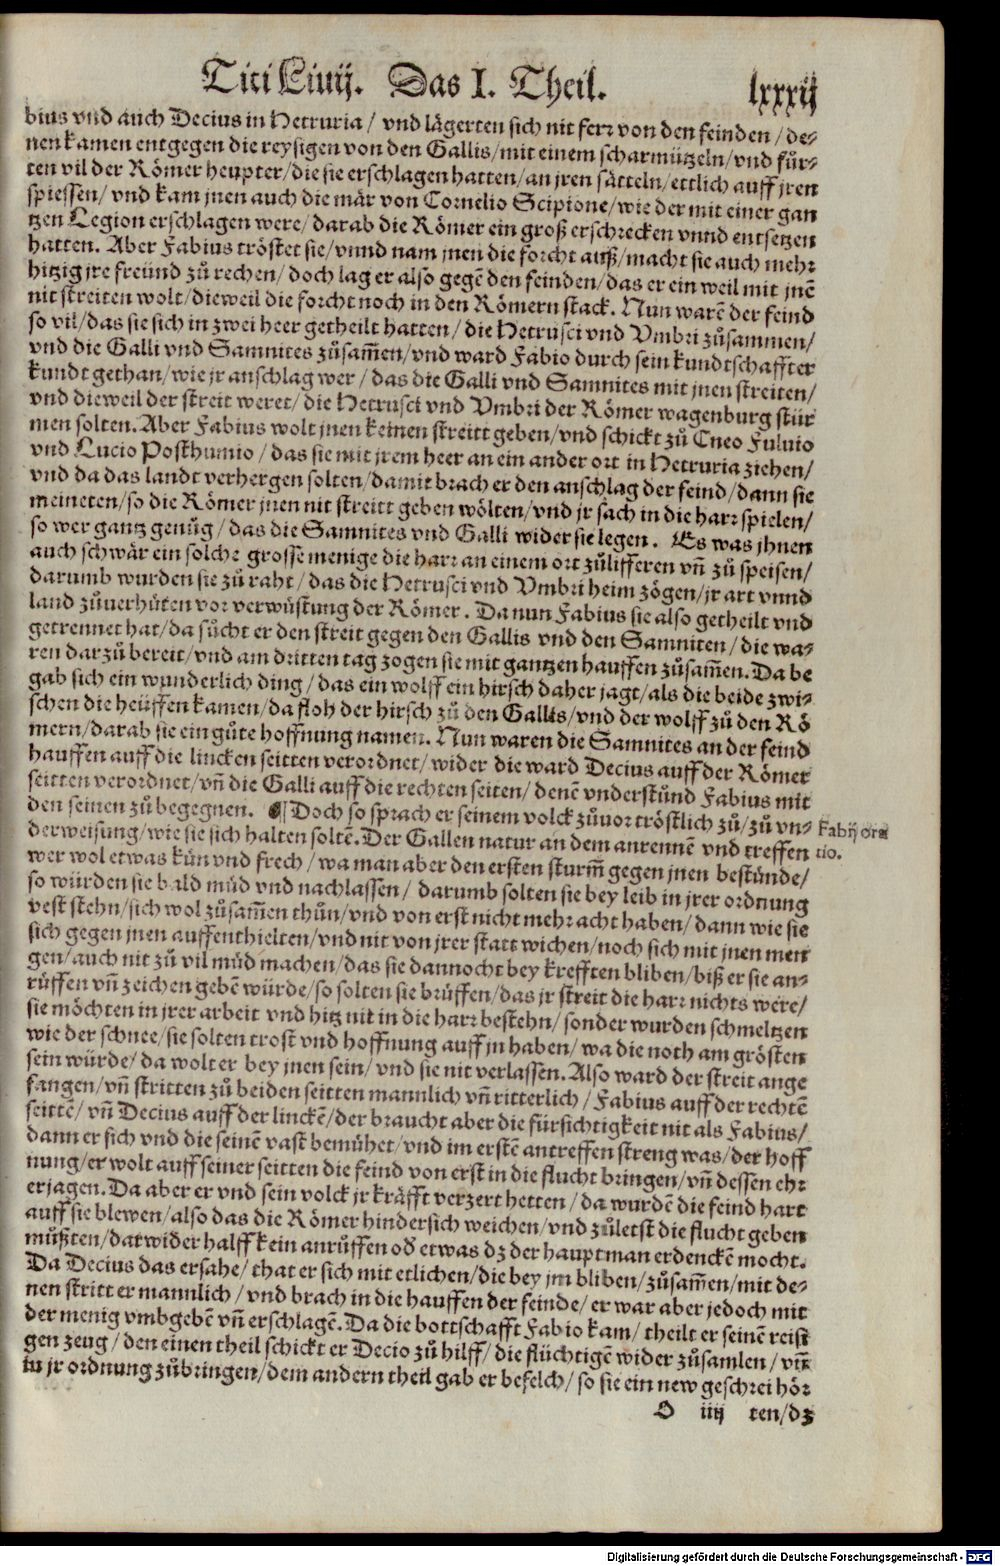 Titi Liuij. Das I. Theil. lxxxij
bius vnd auch Decius in Hetruria / vnd lägerten sich nit ferr von den feinden / de-
nen kamen entgegen die reysigen von den Gallis/mit einem scharmützeln/vnd für-
ten vil der Römer heupter/die sie erschlagen hatten/an jren sätteln/ettlich auff jren
spiessen/ vnd kam jnen auch die mär von Cornelio Scipione/wie der mit einer gan
tzen Legion erschlagen were/darab die Römer ein groß erschrecken vnnd entsetzen
hatten. Aber Fabius tröstet sie/vnnd nam jnen die forcht auß/macht sie auch mehr
hitzig jre freünd zů rechen/ doch lag er also gegē den feinden/das er ein weil mit jnē
nit streiten wolt/dieweil die forcht noch in den Römern stack. Nun warē der feind
so vil/das sie sich in zwei heer getheilt hatten/ die Hetrusci vnd Vmbri zůsammen/
vnd die Galli vnd Samnites zůsam̃en/vnd ward Fabio durch sein kundtschaffter
kundt gethan/wie jr anschlag wer / das die Galli vnd Samnites mit jnen streiten/
vnd dieweil der streit weret/ die Hetrusci vnd Vmbri der Römer wagenburg stür
men solten. Aber Fabius wolt jnen keinen streitt geben/vnd schickt zů Cneo Fuluio
vnd Lucio Posthumio / das sie mit jrem heer an ein ander ort in Hetruria ziehen/
vnd da das landt verhergen solten/damit brach er den anschlag der feind/dann sie
meineten/so die Römer jnen nit streitt geben wölten/vnd jr sach in die harr spielen/
so wer gantz genůg / das die Samnites vnd Galli wider sie legen. Es was jhnen
auch schwär ein solche grosse menige die harr an einem ort zůlifferen vn̄ zů speisen/
darumb wurden sie zů raht/ das die Hetrusci vnd Vmbri heim zögen/jr art vnnd
land zůuerhüten vor verwüstung der Römer. Da nun Fabius sie also getheilt vnd
getrennet hat/da sůcht er den streit gegen den Gallis vnd den Samniten / die wa-
ren darzů bereit/vnd am dritten tag zogen sie mit gantzen hauffen zůsam̃en. Da be
gab sich ein wunderlich ding / das ein wolff ein hirsch daher jagt/als die beide zwi-
schen die heüffen kamen/da floh der hirsch zů den Gallis/vnd der wolff zů den Rö
mern/darab sie ein gůte hoffnung namen. Nun waren die Samnites an der feind
hauffen auff die lincken seitten verordnet/ wider die ward Decius auff der Römer
seitten verordnet/vn̄ die Galli auff die rechten seiten/ denē vnderstůnd Fabius mit
den seinen zů begegnen. ¶ Doch so sprach er seinem volck zůuor tröstlich zů/zů vn-
Fabij ora
derweisung/wie sie sich halten soltē. Der Gallen natur an dem anrennē vnd treffen
tio.
wer wol etwas kün vnd frech/ wa man aber den ersten sturm̃ gegen jnen bestünde/
so würden sie bald müd vnd nachlassen/ darumb solten sie bey leib in jrer ordnung
vest stehn/sich wol zůsam̃en thůn/vnd von erst nicht mehr acht haben/dann wie sie
sich gegen jnen auffenthielten/vnd nit von jrer statt wichen/noch sich mit jnen men
gen/auch nit zů vil müd machen/das sie dannocht bey krefften bliben/biß er sie an-
rüffen vn̄ zeichen gebē würde/so solten sie brüffen/das jr streit die harr nichts were/
sie möchten in jrer arbeit vnd hitz nit in die harr bestehn/ sonder wurden schmeltzen
wie der schnee/sie solten trost vnd hoffnung auff jn haben/wa die noth am grösten
sein würde/da wolt er bey jnen sein/ vnd sie nit verlassen. Also ward der streit ange
fangen/vn̄ stritten zů beiden seitten mannlich vn̄ ritterlich / Fabius auff der rechtē
seittē/ vn̄ Decius auff der linckē/der braucht aber die fürsichtigkeit nit als Fabius/
dann er sich vnd die seinē vast bemühet/vnd im erstē antreffen streng was/der hoff
nung/er wolt auff seiner seitten die feind von erst in die flucht bringen/vn̄ dessen ehr
erjagen. Da aber er vnd sein volck jr kräfft verzert hetten / da wurdē die feind hart
auff sie blewen/also das die Römer hindersich weichen/vnd zůletst die flucht geben
můßten/darwider halff kein anrůffen od̄ etwas dz der hauptman erdenckē mocht.
Da Decius das ersahe/that er sich mit etlichen/die bey jm bliben/zůsam̃en/mit de-
nen stritt er mannlich / vnd brach in die hauffen der feinde/ er war aber jedoch mit
der menig vmbgebē vn̄ erschlagē. Da die bottschafft Fabio kam/ theilt er seinē reisi
gen zeug / den einen theil schickt er Decio zů hilff/ die flüchtigē wider zůsamlen / vn̄
in jr ordnung zůbringen/dem andern theil gab er befelch/ so sie ein new geschrei hör
O iiij ten/dz
Digitalisierung gefördert durch die Deutsche Forschungsgemeinschaft - DFG